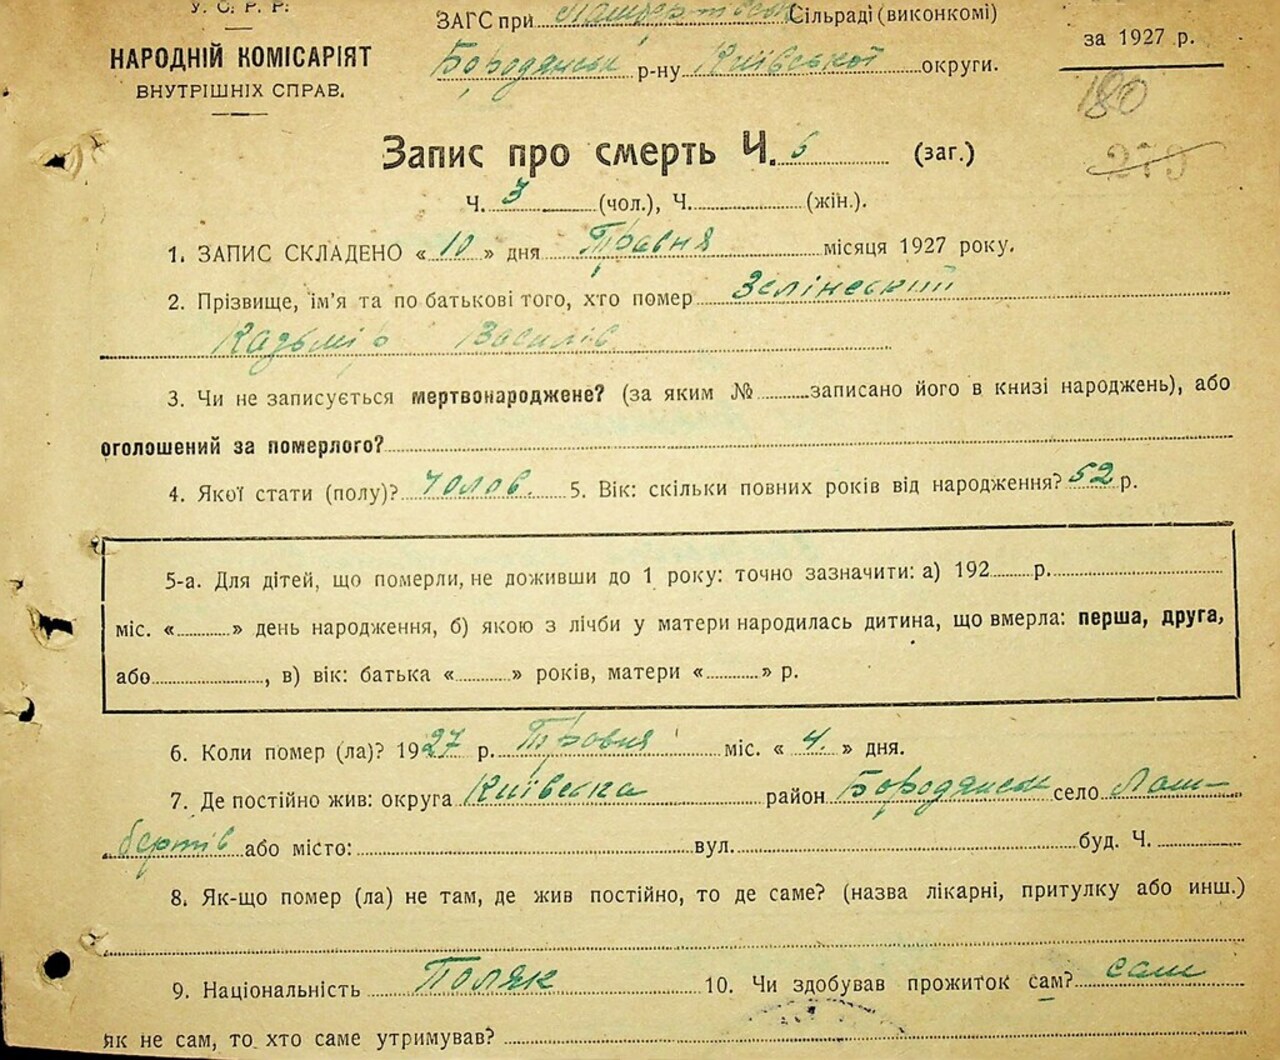 У. С. Р. Р.
НАРОДНІЙ КОМІСАРІЯТ
ВНУТРІШНІХ СПРАВ.
ЗАГС при Сільраді (виконкомі)
Бородянськ р-ну Київської округи.
за 1927 р.
180
279
Запис про смерть Ч. 6 (заг.)
Ч. 3 (чол.), Ч. (жін.).
1. ЗАПИС СКЛАДЕНО « 10 » дня Травня місяця 1927 року.
2. Прізвище, ім'я та по батькові того, хто помер Зелінеский
Кадзьмір Василів
3. Чи не записується мертвонароджене? (за яким № записано його в книзі народжень), або
оголошений за померлого?
4. Якої стати (полу)? Чолов. 5. Вік: скільки повних років від народження? 52 р.
5-а. Для дітей, що померли, не доживши до 1 року: точно зазначити: а) 192 р.
міс. « » день народження, б) якою з лічби у матери народилась дитина, що вмерла: перша, друга,
або , в) вік: батька « » років, матери « » р.
6. Коли помер (ла)? 1927 р. Травня міс. « 4. » дня.
7. Де постійно жив: округа Київська район Бородянськ село Лам-
бертів або місто: вул. буд. Ч.
8. Як-що помер (ла) не там, де жив постійно, то де саме? (назва лікарні, притулку або инш.)
9. Національність Поляк 10. Чи здобував прожиток сам? сам
Як не сам, то хто саме утримував?